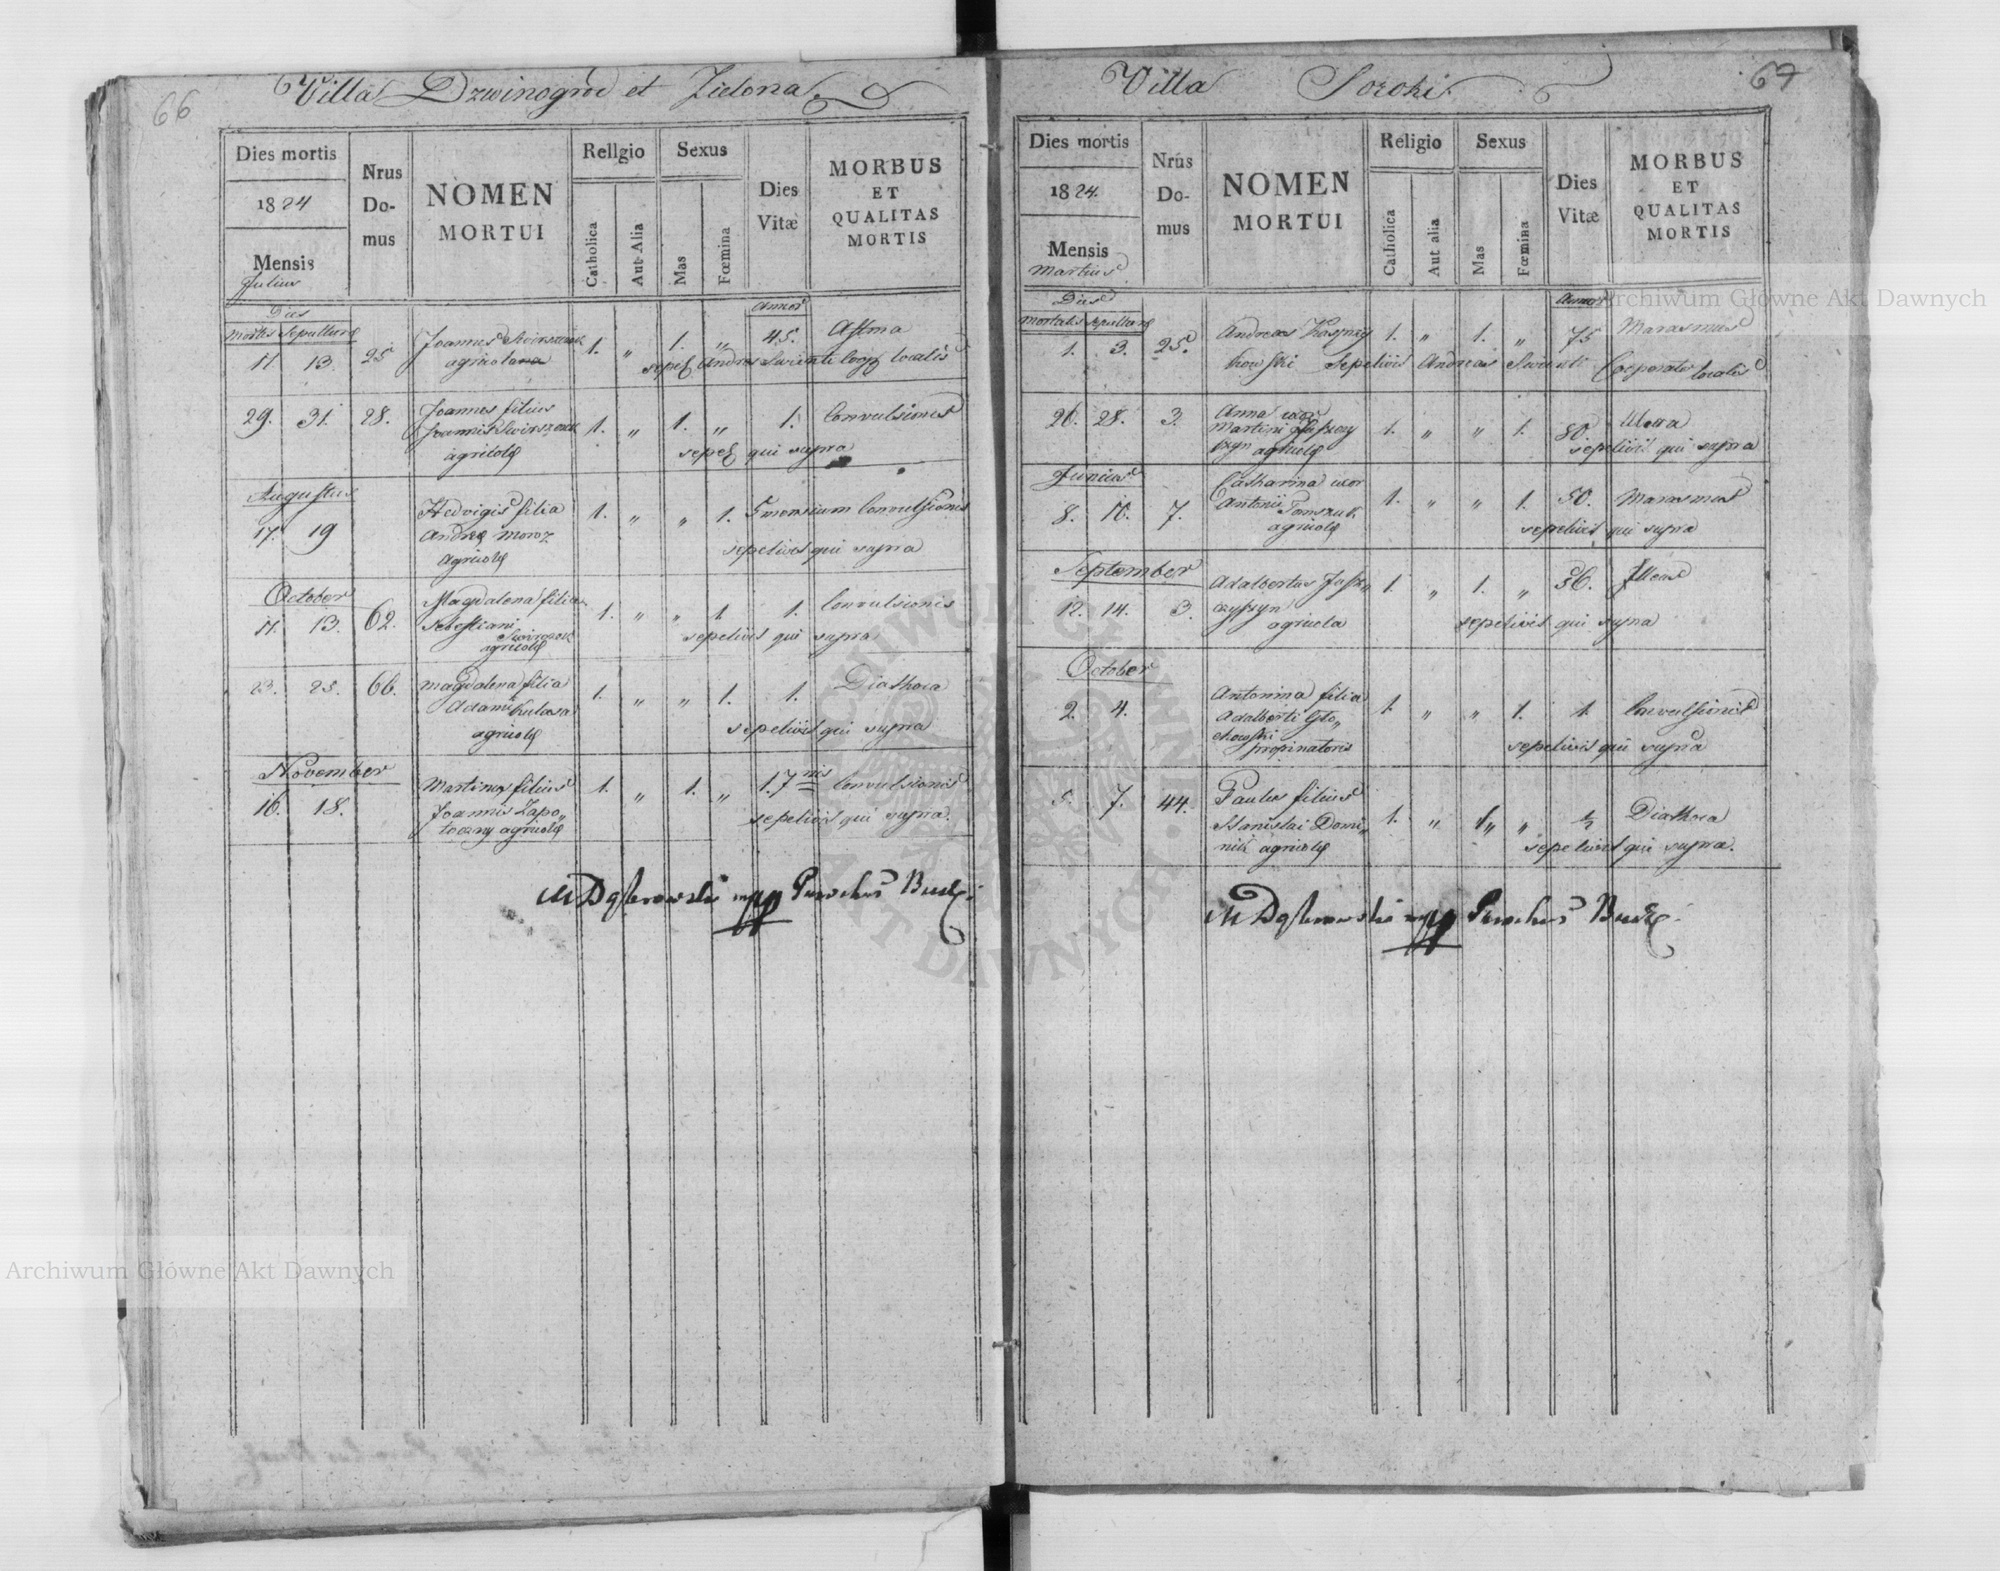 66
Villa Dzwinogrod et Zielona
Dies mortis
1824
Mensis
Julius
Nrus
Do-
mus
NOMEN
MORTUI
Religio
Catholica
Aut Alia
Sexus
Mas
Fœmina
Dies
Vitæ
MORBUS
ET
QUALITAS
MORTIS
Dies
Mortis Sepulturæ
Annor
11. 13. 25 Joannes 1. „ 1. „ 45. Astma
agricola sepel Andreas Swienti Coop localis
29. 31. 28. Joannes filius 1. „ 1. „ 1. Convulsiones
Joannis
agricolæ sepel qui supra
Augustus
17. 19 Hedvigis filia 1. „ „ 1. 5 mensium Convulsionis
Andreæ Moroz
agricolæ sepelivit qui supra
October
11. 13. 62. Magdalena filia 1. „ „ 1 1. Convulsionis
Sebestiani
agricolæ sepelivit qui supra
23. 25. 66. Magdalena filia 1. „ „ 1. 1. Diathoea
Adami Kulasa
agricolæ sepelivit qui supra
November
16. 18. Martinus filius 1. „ 1. „ 1.7 nis Convulsionis
Joannis Zapo„
toczny agricolæ sepelivit qui supra.
M Dąbrowski mpp Parochus
67
Villa Soroki.
Dies mortis
1824.
Mensis
Martius
Nrús
Do-
mus
NOMEN
MORTUI
Religio
Catholica
Aut alia
Sexus
Mas
Fœmina
Dies
Vitæ
MORBUS
ET
QUALITAS
MORTIS
Dies
mortalis sepulturæ
Annor
1. 3. 25. Andreas Kasprzy 1. „ 1. „ 75 Marasmus
kowski Sepelivit Andreas Swienti Cooperator localis
26. 28. 3. Anna uxor 1. „ „ 1. 80.
Martini
agricolæ sepelivit qui supra
Junius
8. 10. 7. Catharina uxor 1. „ „ 1. 50. Marasmus
Antonii
agricolæ sepelivit qui supra
September
12. 14. 3 Adalbertus 1. „ 1. „ 36.
agricola sepelivit qui supra
October
2. 4. Antonina filia 1. „ „ 1. 1. Convulsionis
Adalberti Glo„
chowski
propinatoris sepelivit qui supra
5. 7. 44. Paulus filius 1. „ 1„ „ ½ Diathoea
Stanislai Domi„
nik agricolæ sepelivit qui supra.
M Dąbrowski mpp Parochus
Archiwum Główne Akt Dawnych
Archiwum Główne Akt Dawnych
ARCHIWUM GŁÓWNE AKT DAWNYCH